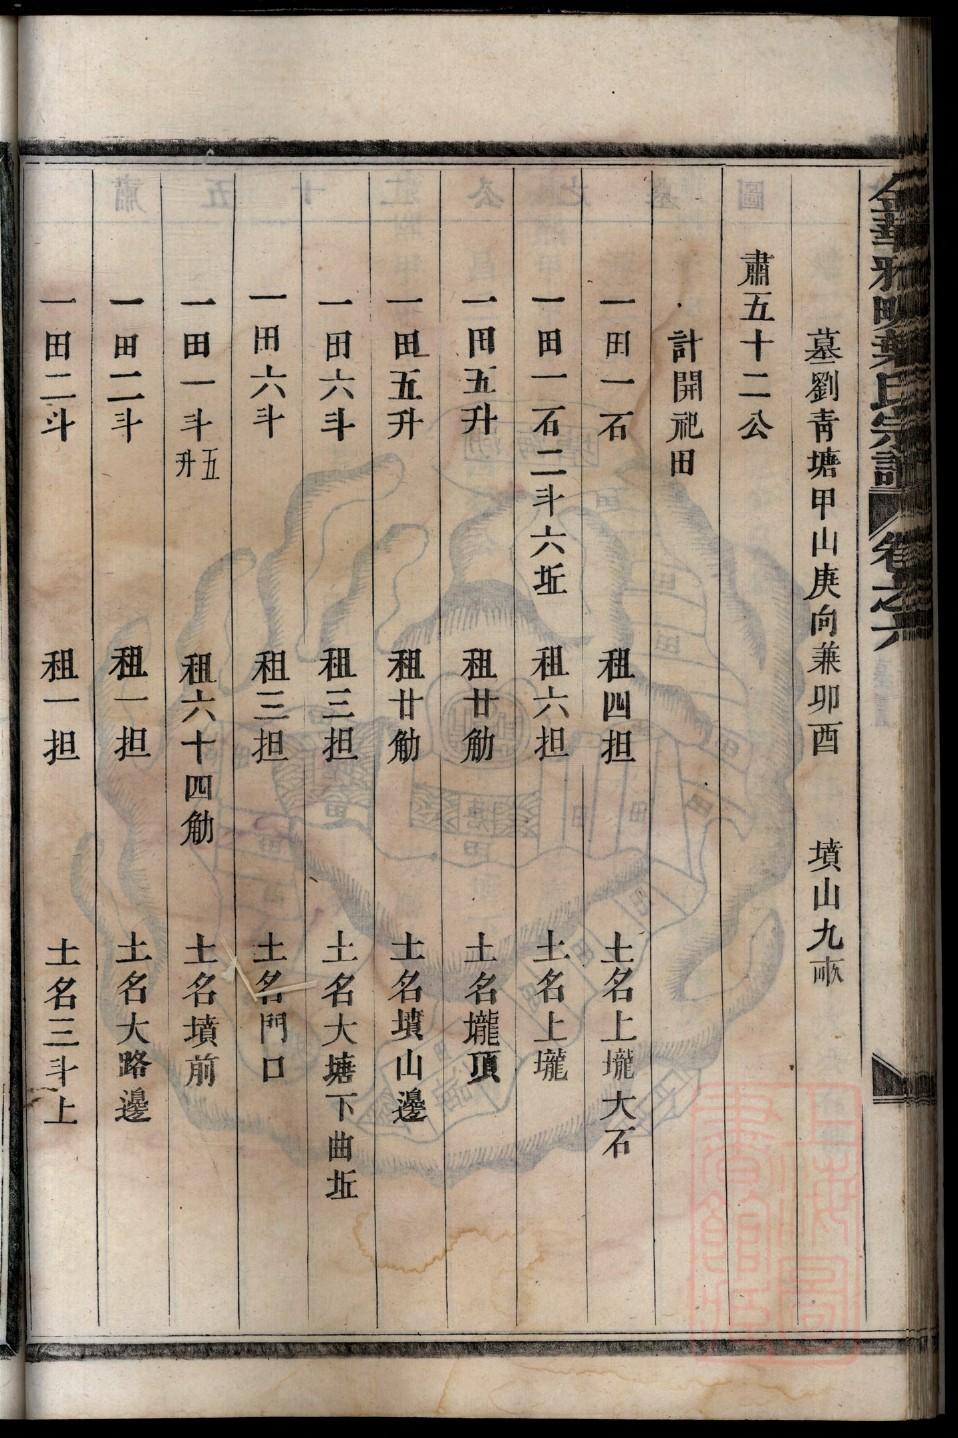 金華雅畈葉氏宗譜 卷之六
墓劉青塘甲山庚向兼卯酉 墳山九畝
肅五十二公
計開祀田
一田一石 租四担 土名上壠大石
一田一石二斗六坵 租六担 土名上壠
一田五升 租廿觔 土名壠頂
一田五升 租廿觔 土名墳山邊
一田六斗 租三担 土名大塘下曲坵
一田六斗 租三担 土名門口
一田一斗五升 租六十四觔 土名墳前
一田二斗 租一担 土名大路邊
一田二斗 租一担 土名三斗上